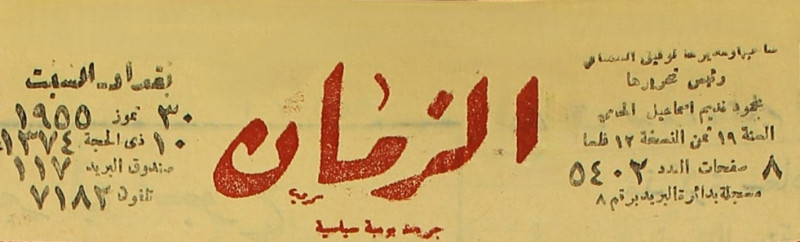 صاحبها ومديرها توفيق السمعاني
رئيس تحريرها
محمود نديم اسماعيل المحامي
السنة ١٩ ثمن النسخة ١٢ فلسا
٨ صفحات العدد ٥٤٠٢
مسجلة بدائرة البريد برقم ٨
الزمان
جريدة يومية سياسية
بغداد. السبت
٣٠ تموز ١٩٥٥
١٠ ذى الحجة ١٣٧٤
صندوق البريد ١١٧
تلفون ٧١٨٣